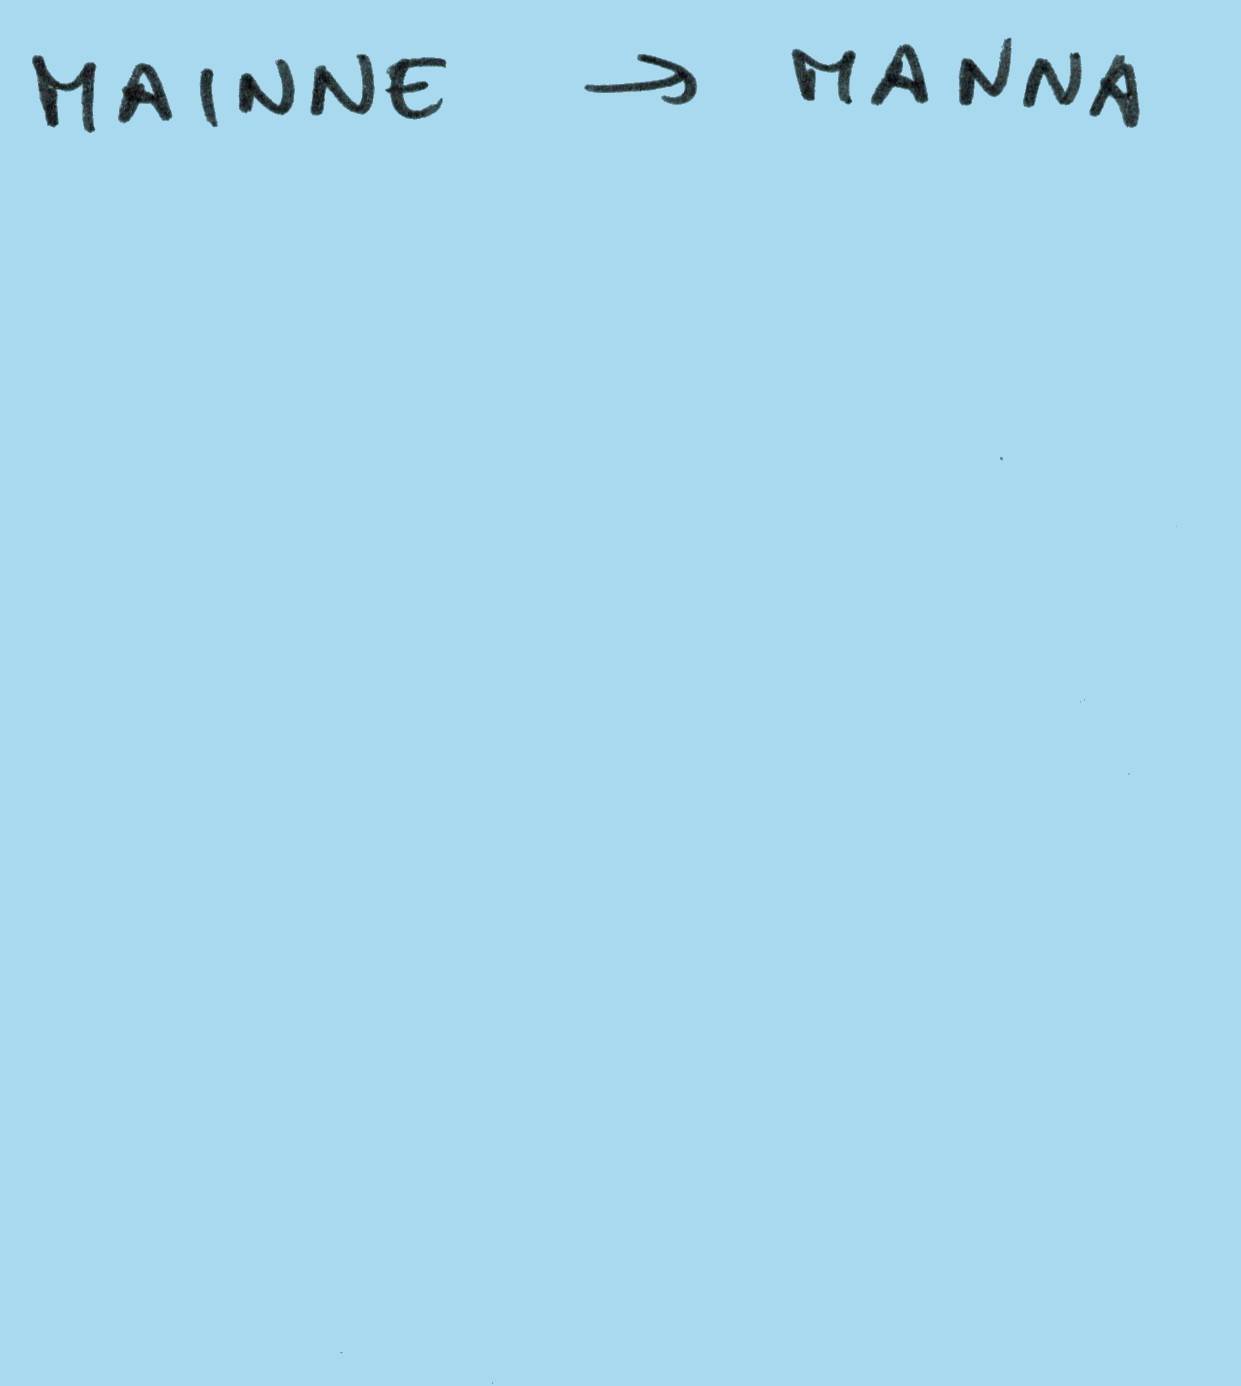 MAINNE → MANNA